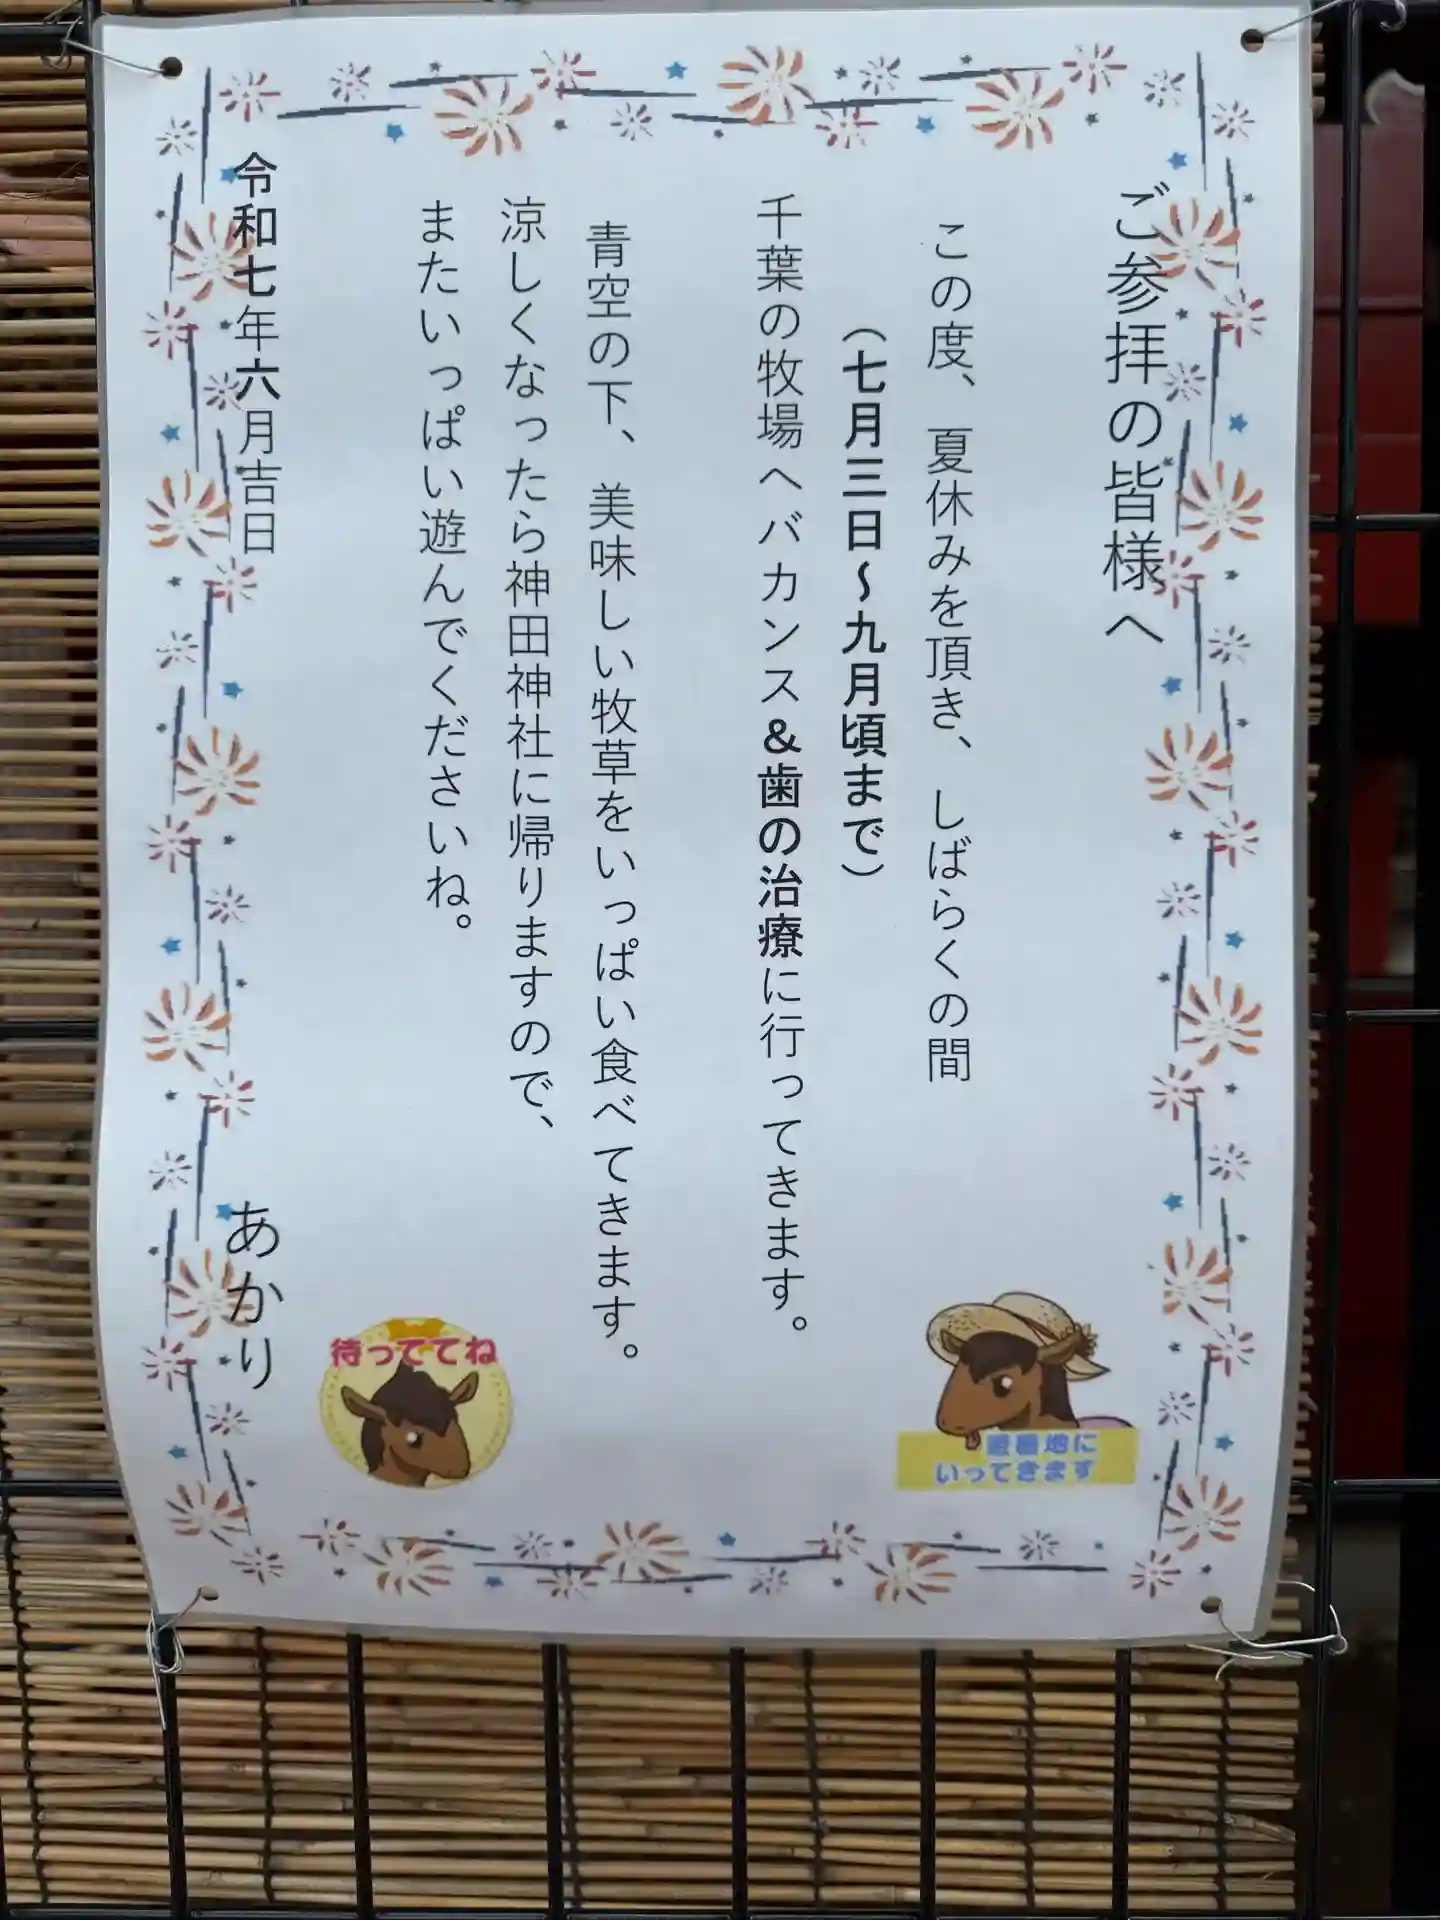 ご参拝の皆様へ
この度、夏休みを頂き、しばらくの間
（七月三日～九月頃まで）
千葉の牧場へバカンス＆歯の治療に行ってきます。
青空の下、美味しい牧草をいっぱい食べてきます。
涼しくなったら神田神社に帰りますので、
またいっぱい遊んでくださいね。
令和七年六月吉日
あかり
避暑地に
いってきます
待っててね